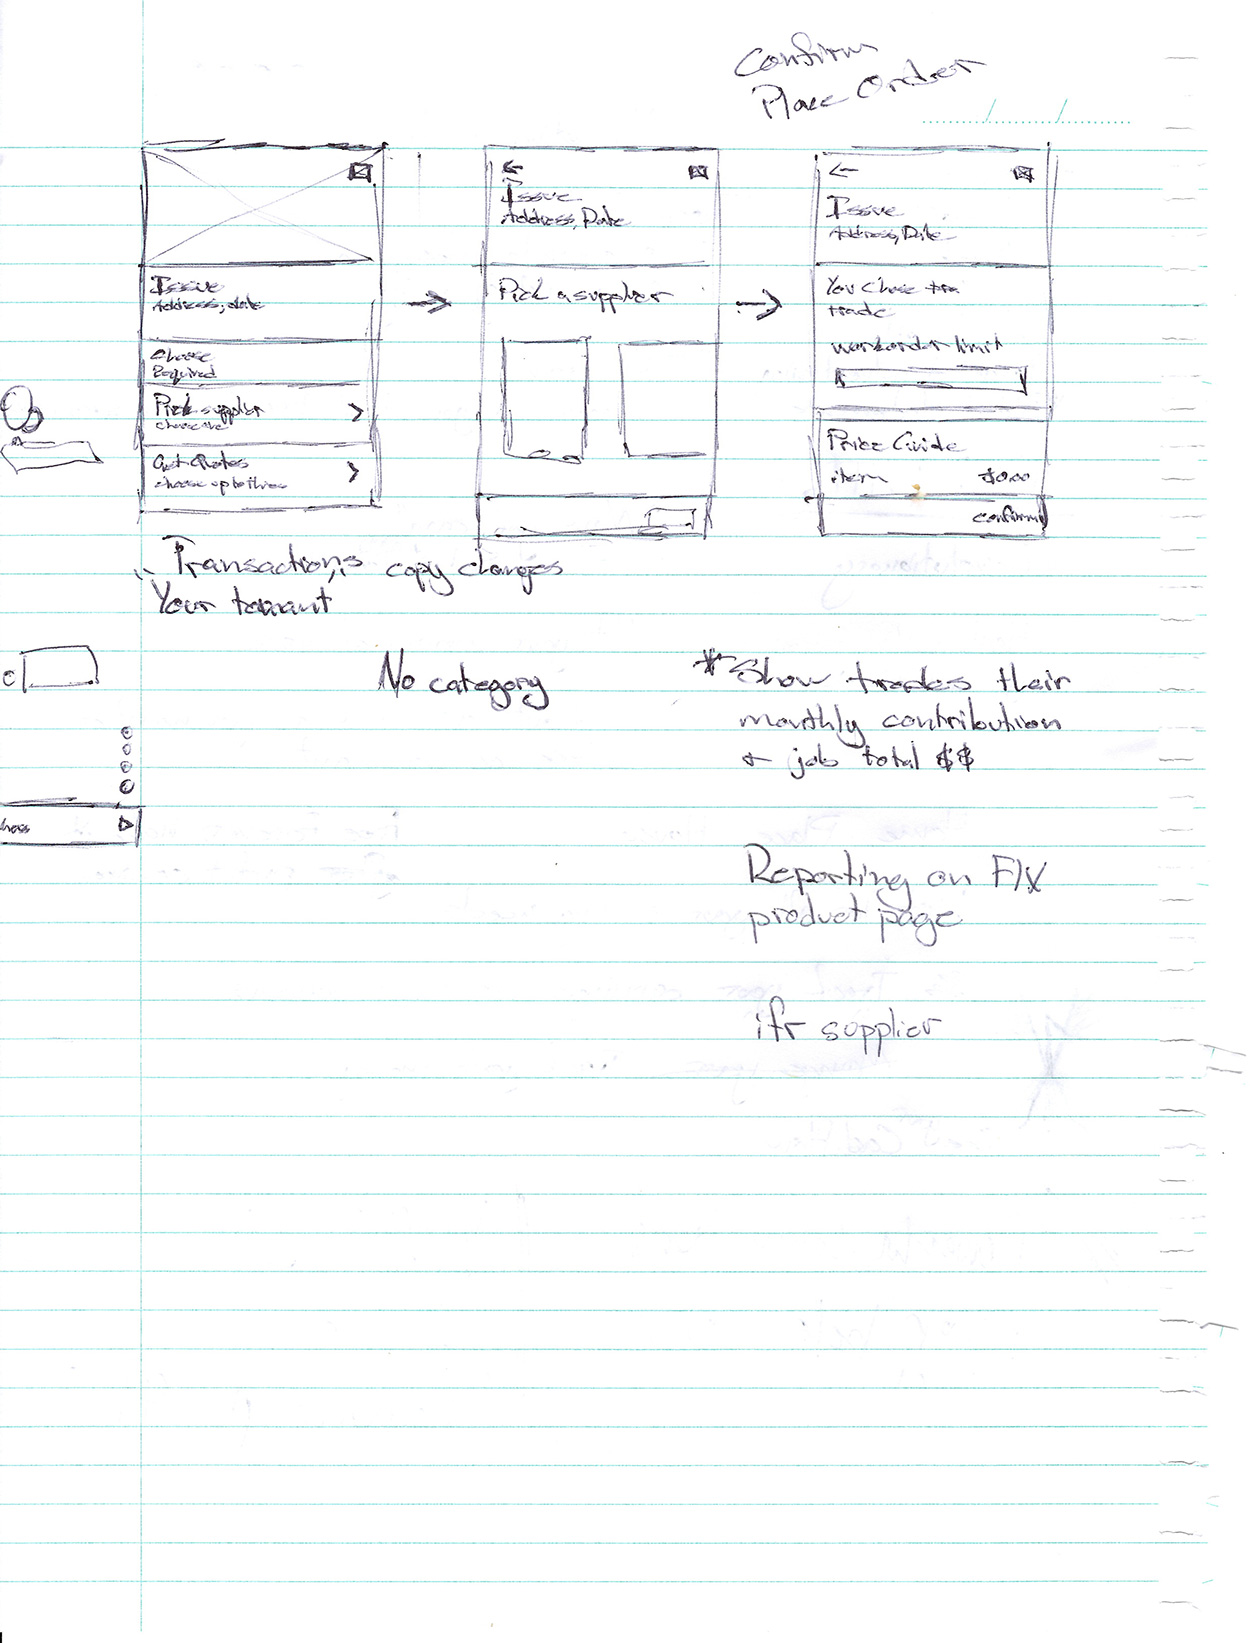 Confirm
Place Order
Issue
Address, date
Choose
Required
Pick supplier
choose one
Get Quotes
choose up to three
Issue
Address, Date
Pick a supplier
Issue
Address, Date
You Chose
trade
workorder limit
Price Guide
item $0.00
confirm
Transactions copy changes
"Your tennant"
No category
*Show trades their
monthly contribution
+ job total $$
Reporting on FIX
product page
ifr supplier